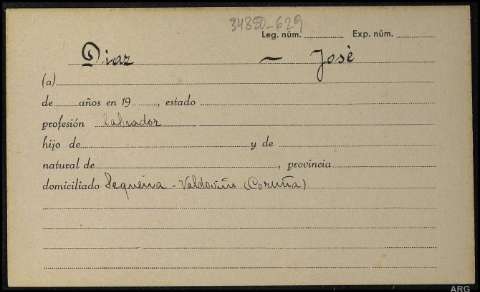 34850-629
Leg. núm. Exp. núm.
Diaz - José
(a)
de años en 19 , estado
profesión labrador
hijo de y de
natural de , provincia
domiciliado Sequeiro - Valdoviño (Coruña)
ARG